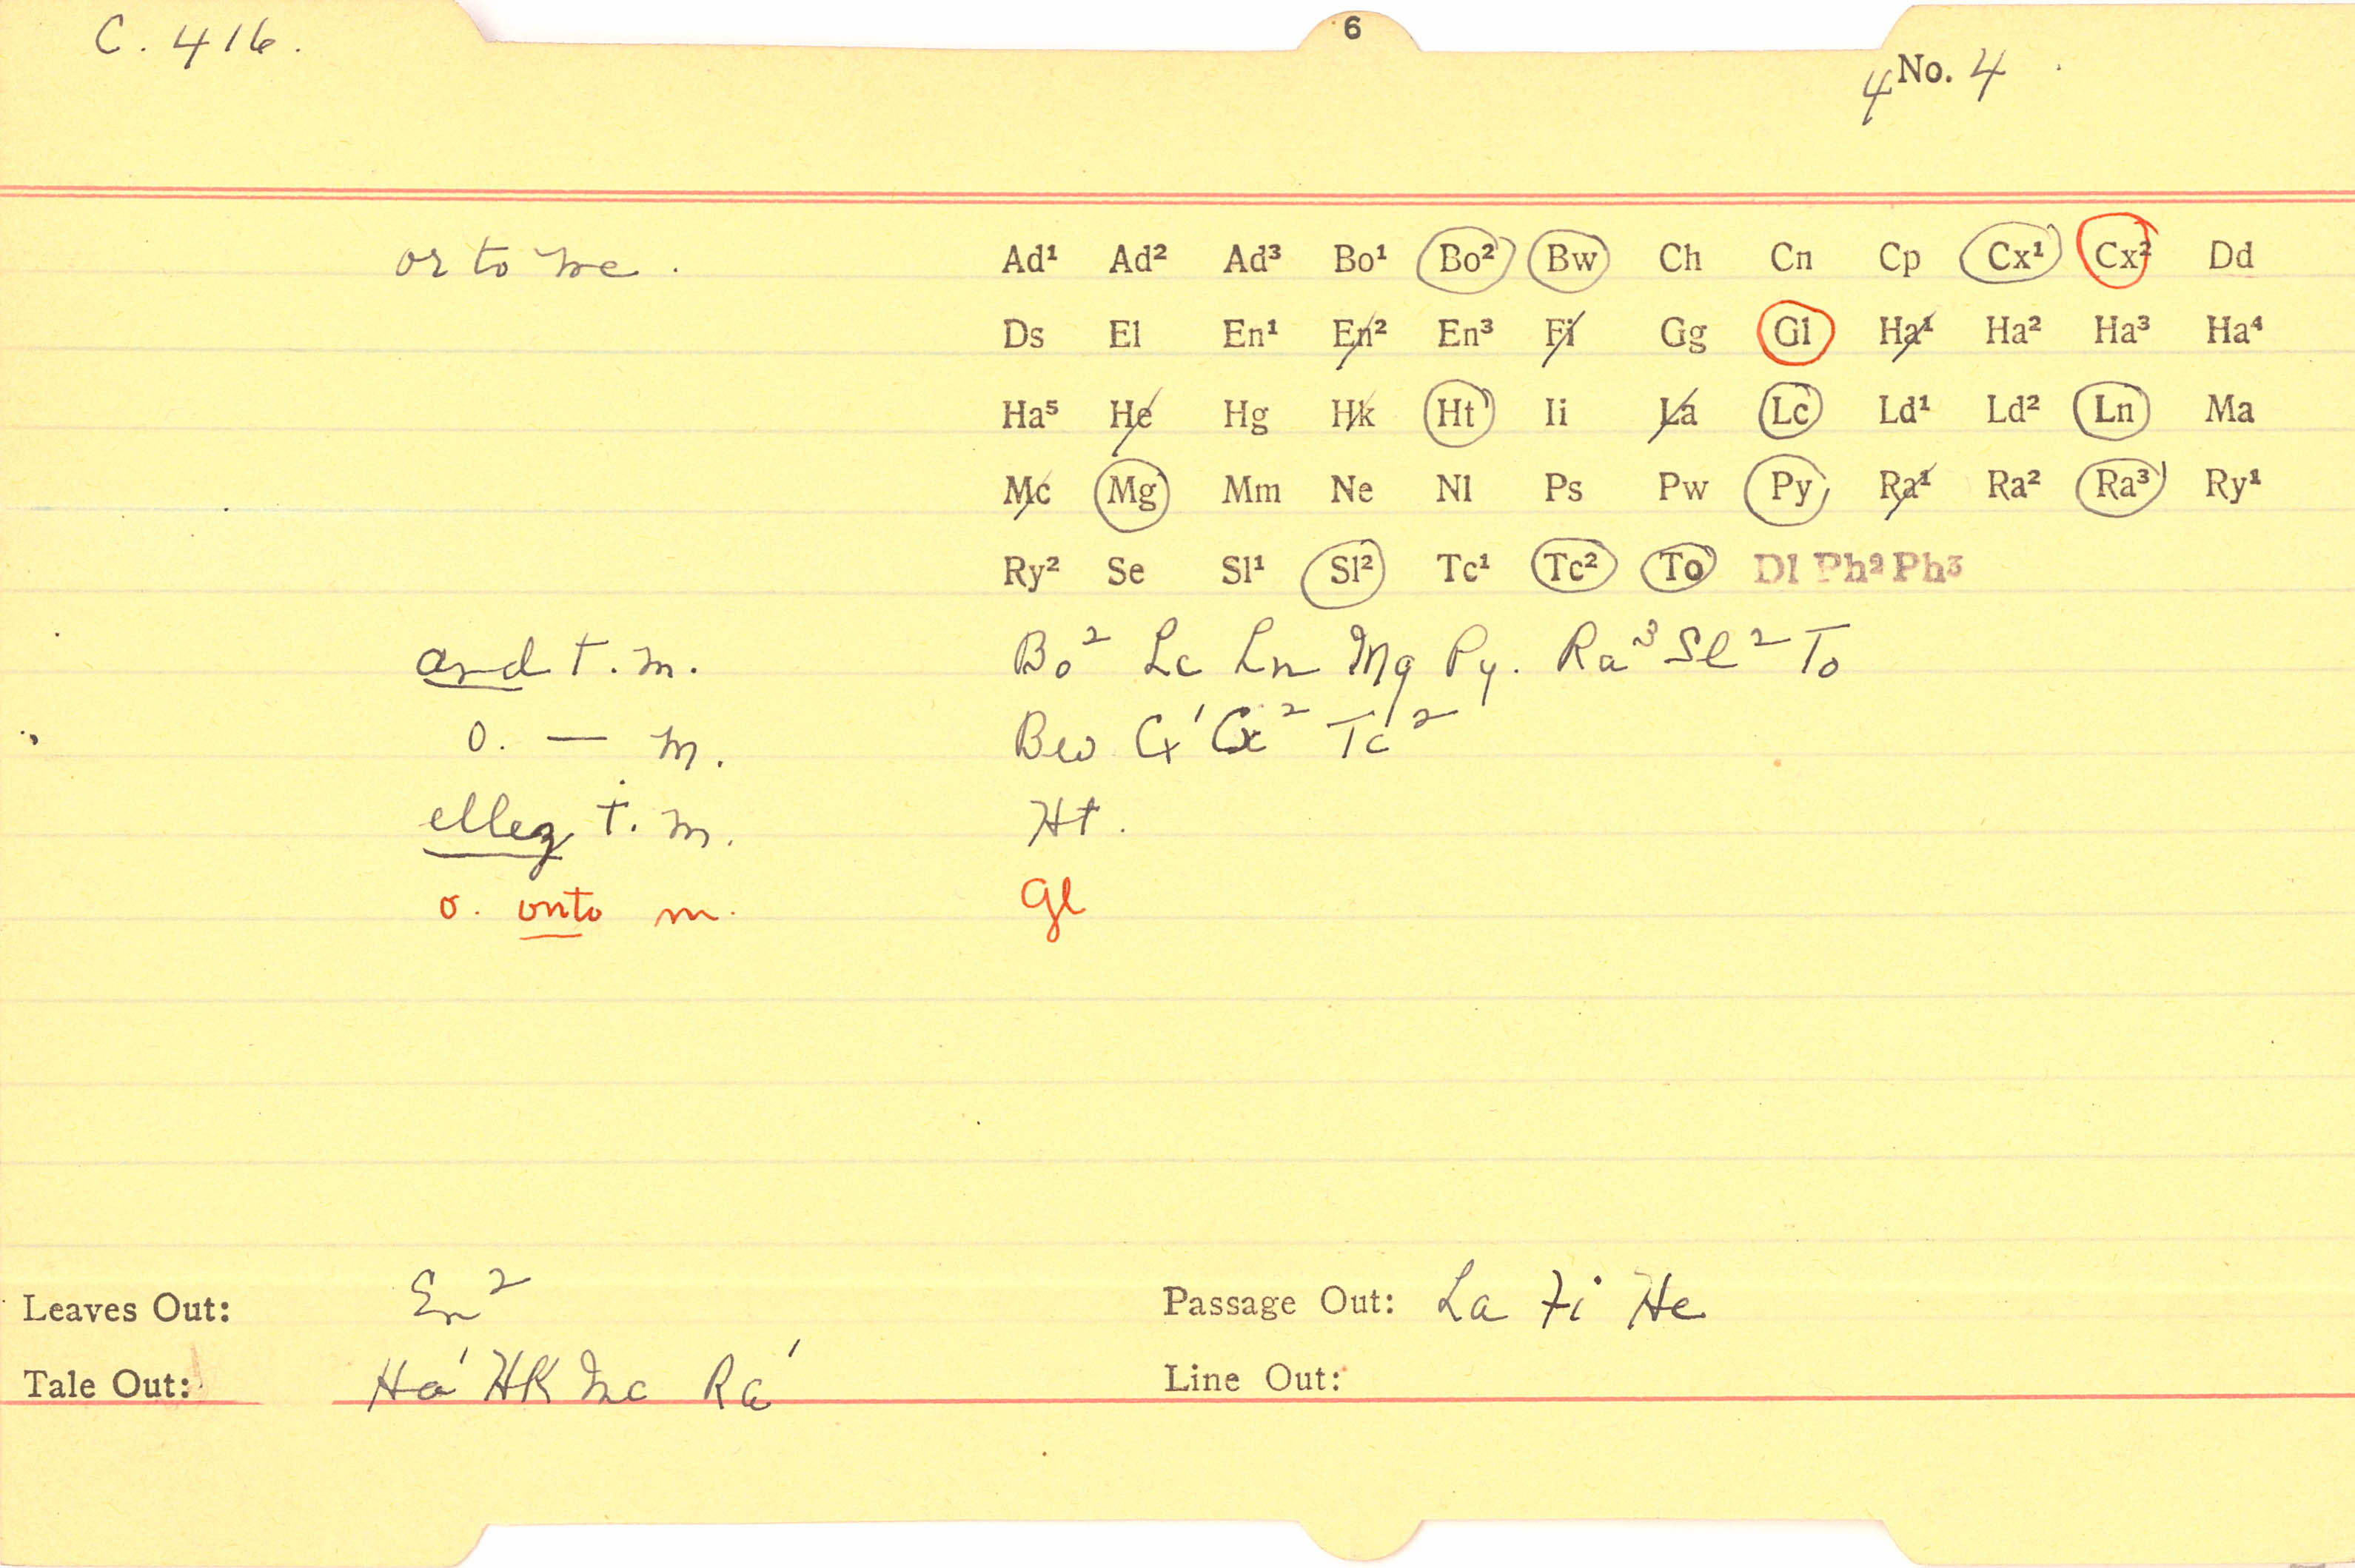 C. 416.
6
4 No. 4
or to me. Ad¹ Ad² Ad³ Bo¹ Bo² Bw Ch Cn Cp Cx¹ Cx² Dd
Ds El En¹ En² En³ Fi Gg Gl Ha¹ Ha² Ha³ Ha⁴
Ha⁵ He Hg Hk Ht Ii La Lc Ld¹ Ld² Ln Ma
Mc Mg Mm Ne Nl Ps Pw Py Ra¹ Ra² Ra³ Ry¹
Ry² Se Sl¹ Sl² Tc¹ Tc² To Dl Ph² Ph³
and t. m. Bo² Lc Ln Mg Py. Ra³ Sl² To
o. — m. Bw Cx¹ Cx² Tc²
elleȝ t. m. Ht.
o. onto m. Gl
Leaves Out: En² Passage Out: La Fi He
Tale Out: Ha¹ Hk Mc Ra¹ Line Out: